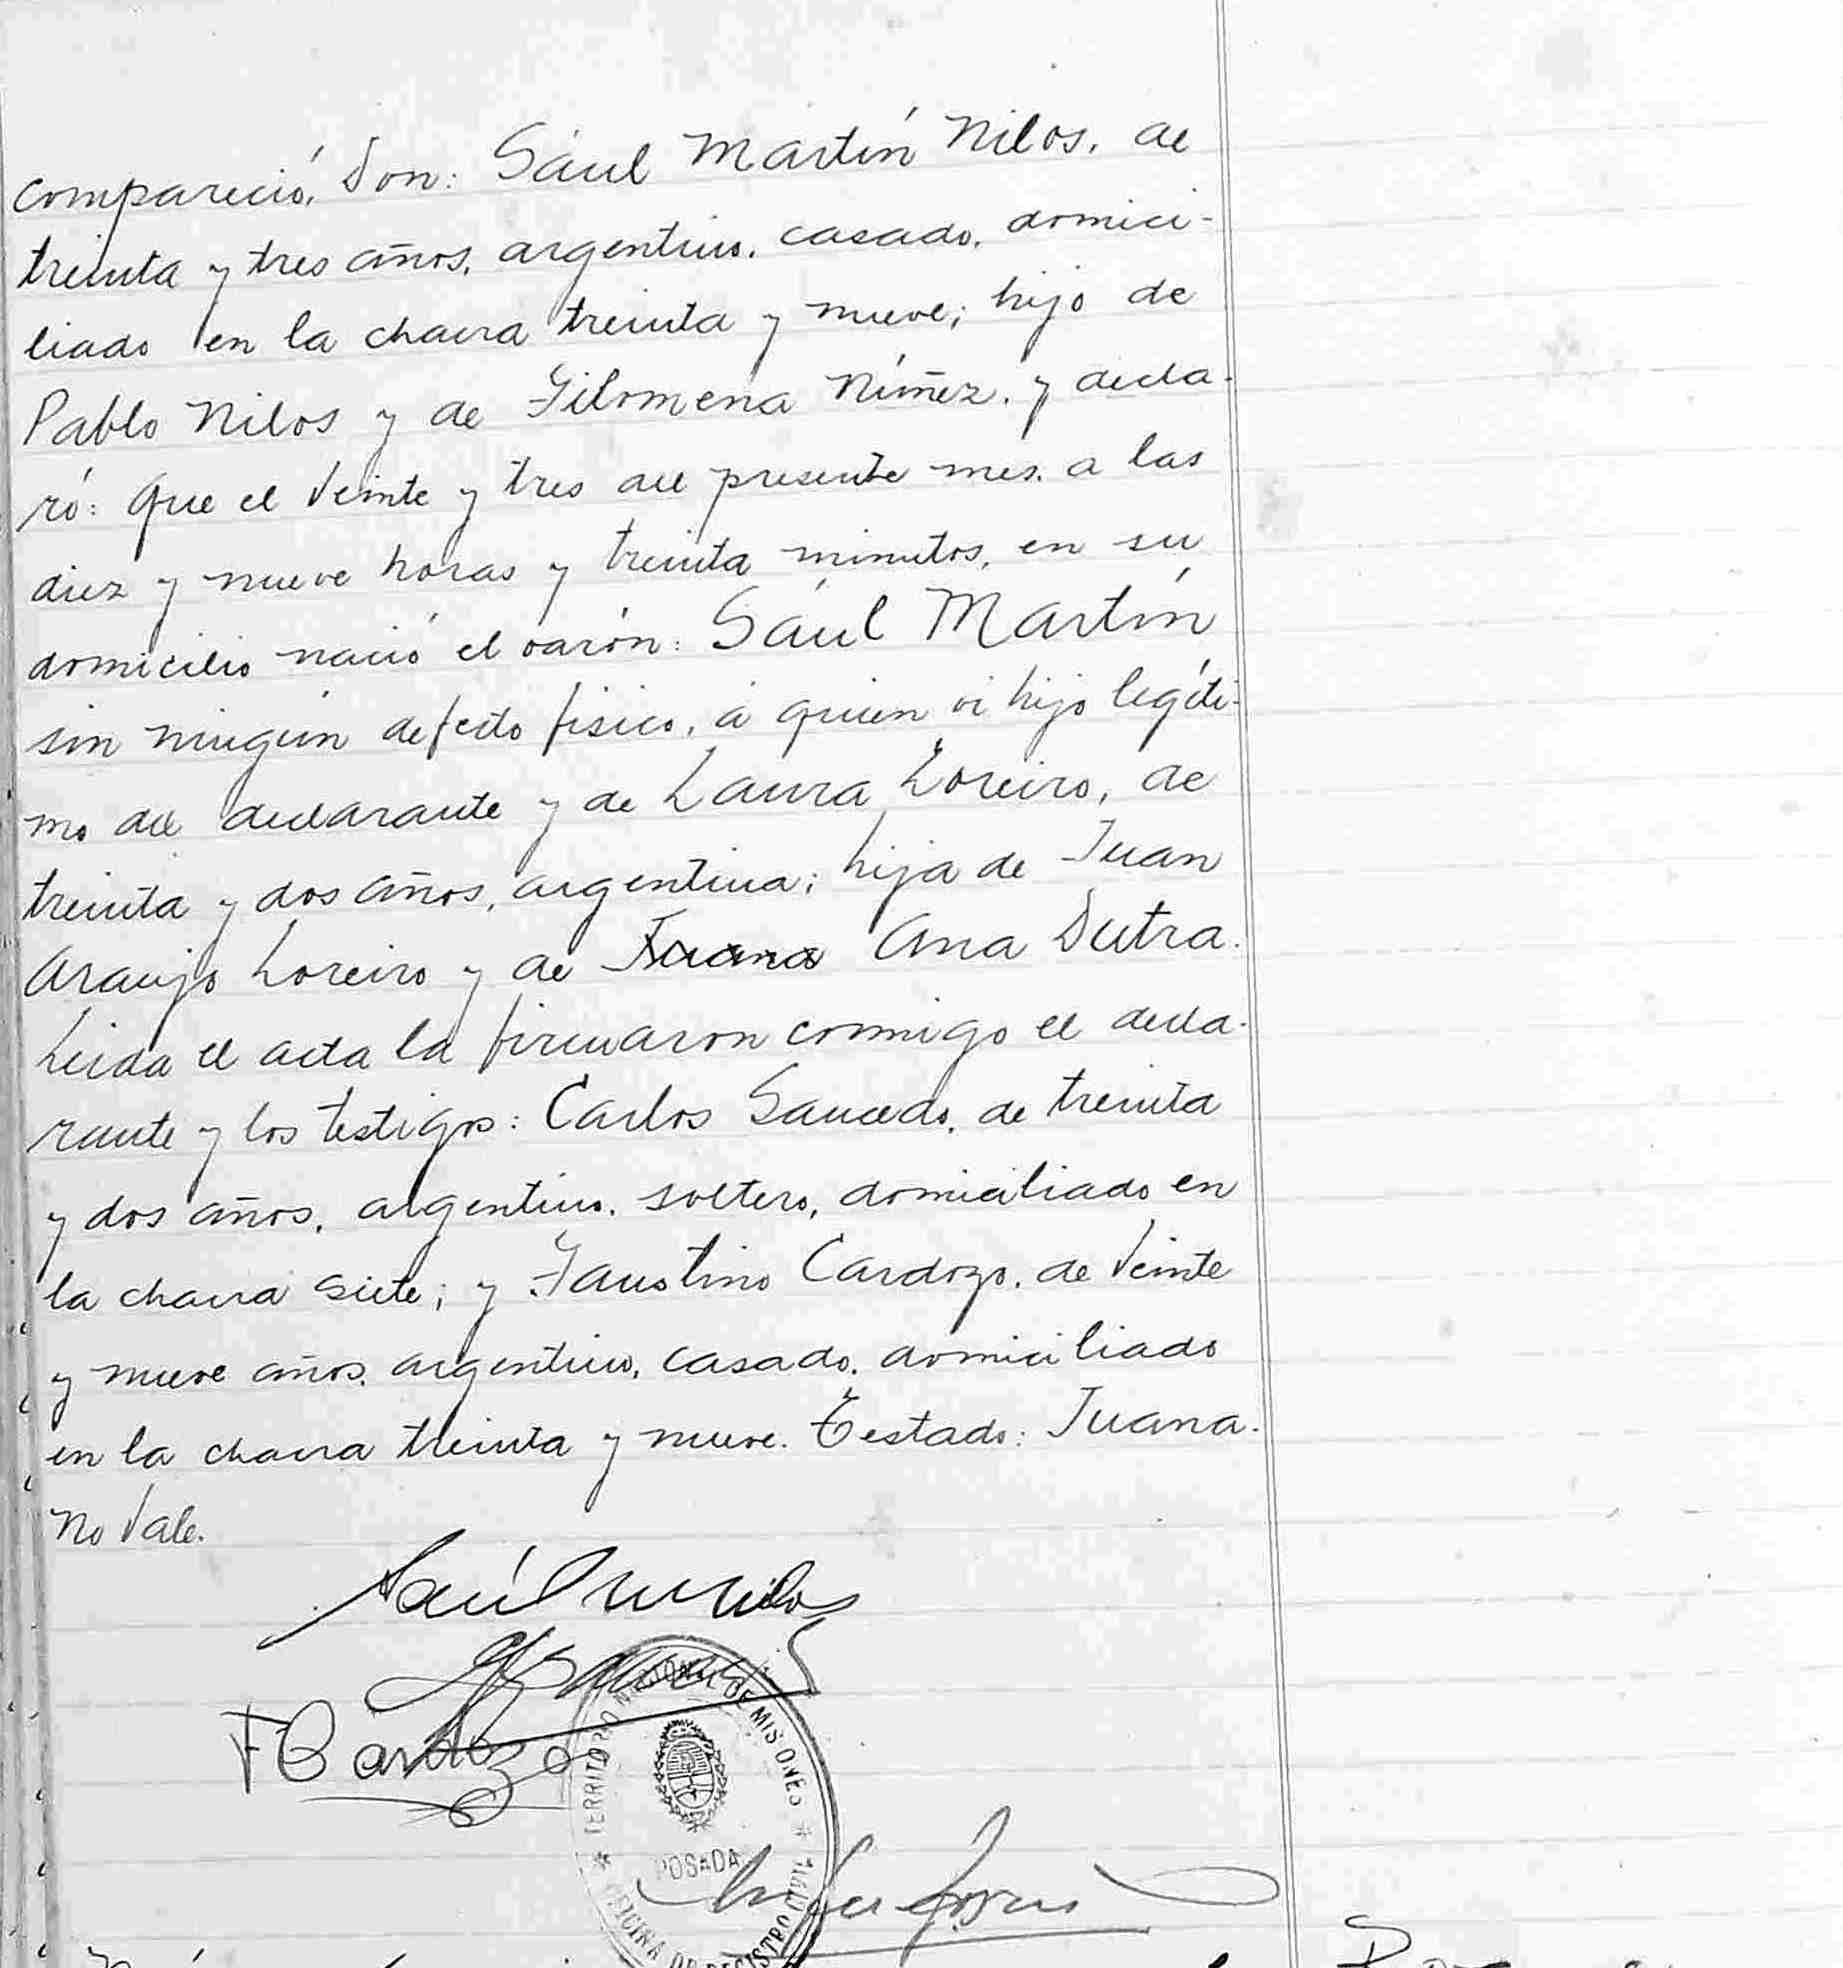 compareció, Don: Sául Martín Nilos, de
treinta y tres años, argentino, casado, domici-
liado en la chacra treinta y nueve; hijo de
Pablo Nilos y de Filomena Núñez, y decla-
ró: Que el veinte y tres del presente mes, a las
diez y nueve horas y treinta minutos, en su
domicilio nació el varón: Sául Martín
sin ningún defecto fisico, á quien ví hijo legíti-
mo del declarante y de Laura Loreiro, de
treinta y dos años, argentina; hija de Juan
Araujo Loreiro y de Juana Ana Dutra.
Leida el acta la firmaron conmigo el decla-
rante y los testigos: Carlos Saucedo, de treinta
y dos años, argentino, soltero, domiciliado en
la chacra siete; y Faustino Cardozo, de veinte
y nueve años, argentino, casado, domiciliado
en la chacra treinta y nueve. Testado: Juana.
No vale.
Saúl M Nilos
F Cardozo
TERRITORIO NACIONAL DE MISIONES
POSADAS
OFICINA DE REGISTRO